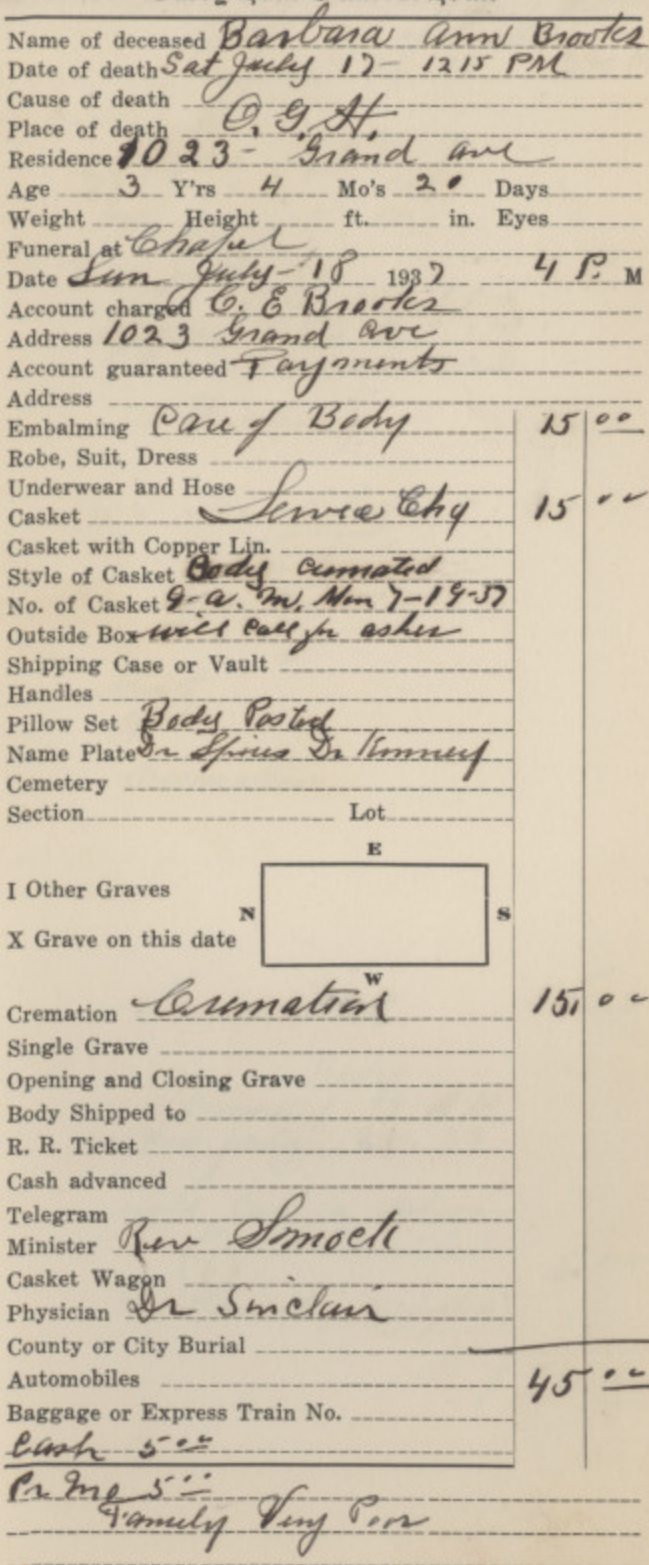 Name of deceased Barbara Ann Brooks
Date of death Sat July 17 - 12 15 PM
Cause of death
Place of death O. G. H.
Residence 1023 - Grand ave
Age 3 Y'rs 4 Mo's 20 Days
Weight Height ft. in. Eyes
Funeral at Chapel
Date Sun July - 18 1937 4 P. M
Account charged C. E Brooks
Address 1023 Grand ave
Account guaranteed Payments
Address
Embalming Care of Body 15 00
Robe, Suit, Dress
Underwear and Hose
Casket Service Chg 15 00
Casket with Copper Lin.
Style of Casket Body cremated
No. of Casket 9 - a. m. Mon 7-19-37
Outside Box will call for ashes
Shipping Case or Vault
Handles
Pillow Set Body Posted
Name Plate Dr Dr
Cemetery
Section Lot
E
I Other Graves
N S
X Grave on this date
W
Cremation Cremation 15 00
Single Grave
Opening and Closing Grave
Body Shipped to
R. R. Ticket
Cash advanced
Telegram
Minister Rev Smock
Casket Wagon
Physician Dr Sinclair
County or City Burial
Automobiles 45 00
Baggage or Express Train No.
Cash 5 00
Pr Mo 5 00
Family Very Poor